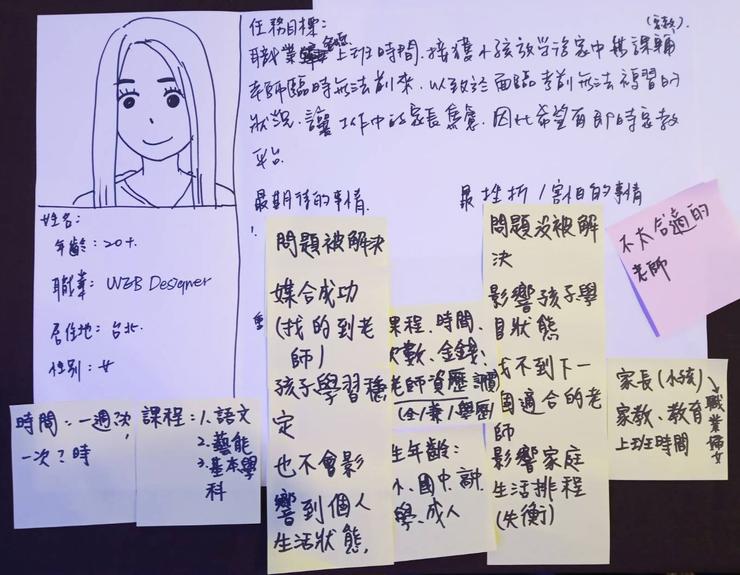 任務目標:
(家教).
職業 上班時間.接獲小孩放學後家中 課輔
老師臨時無法前來.以致於面臨考前無法複習的
狀況.讓工作中的家長焦慮.因此希望有即時家教
平台.
最期待的事情
最挫折/害怕的事情
姓名:
年齡:20+.
職業:WEB Designer
居住地:台北.
性別:女
問題被解決
媒合成功
(找的到老
師)
孩子學習穩
定
也不會影
響到個人
生活狀態.
課程、時間、
次數、金錢、
老師資歷
(全/兼/學歷)
生年齡:
小、國中、
學、成人
問題沒被解
決
影響孩子學
習狀態
找不到下一
個適合的老
師
影響家庭
生活排程
(失衡)
不太合適的
老師
時間:一週?次,
一次?時
課程:1.語文
2.藝能
3.基本學
科
家長(小孩)
家教、教育
上班時間
職業婦女